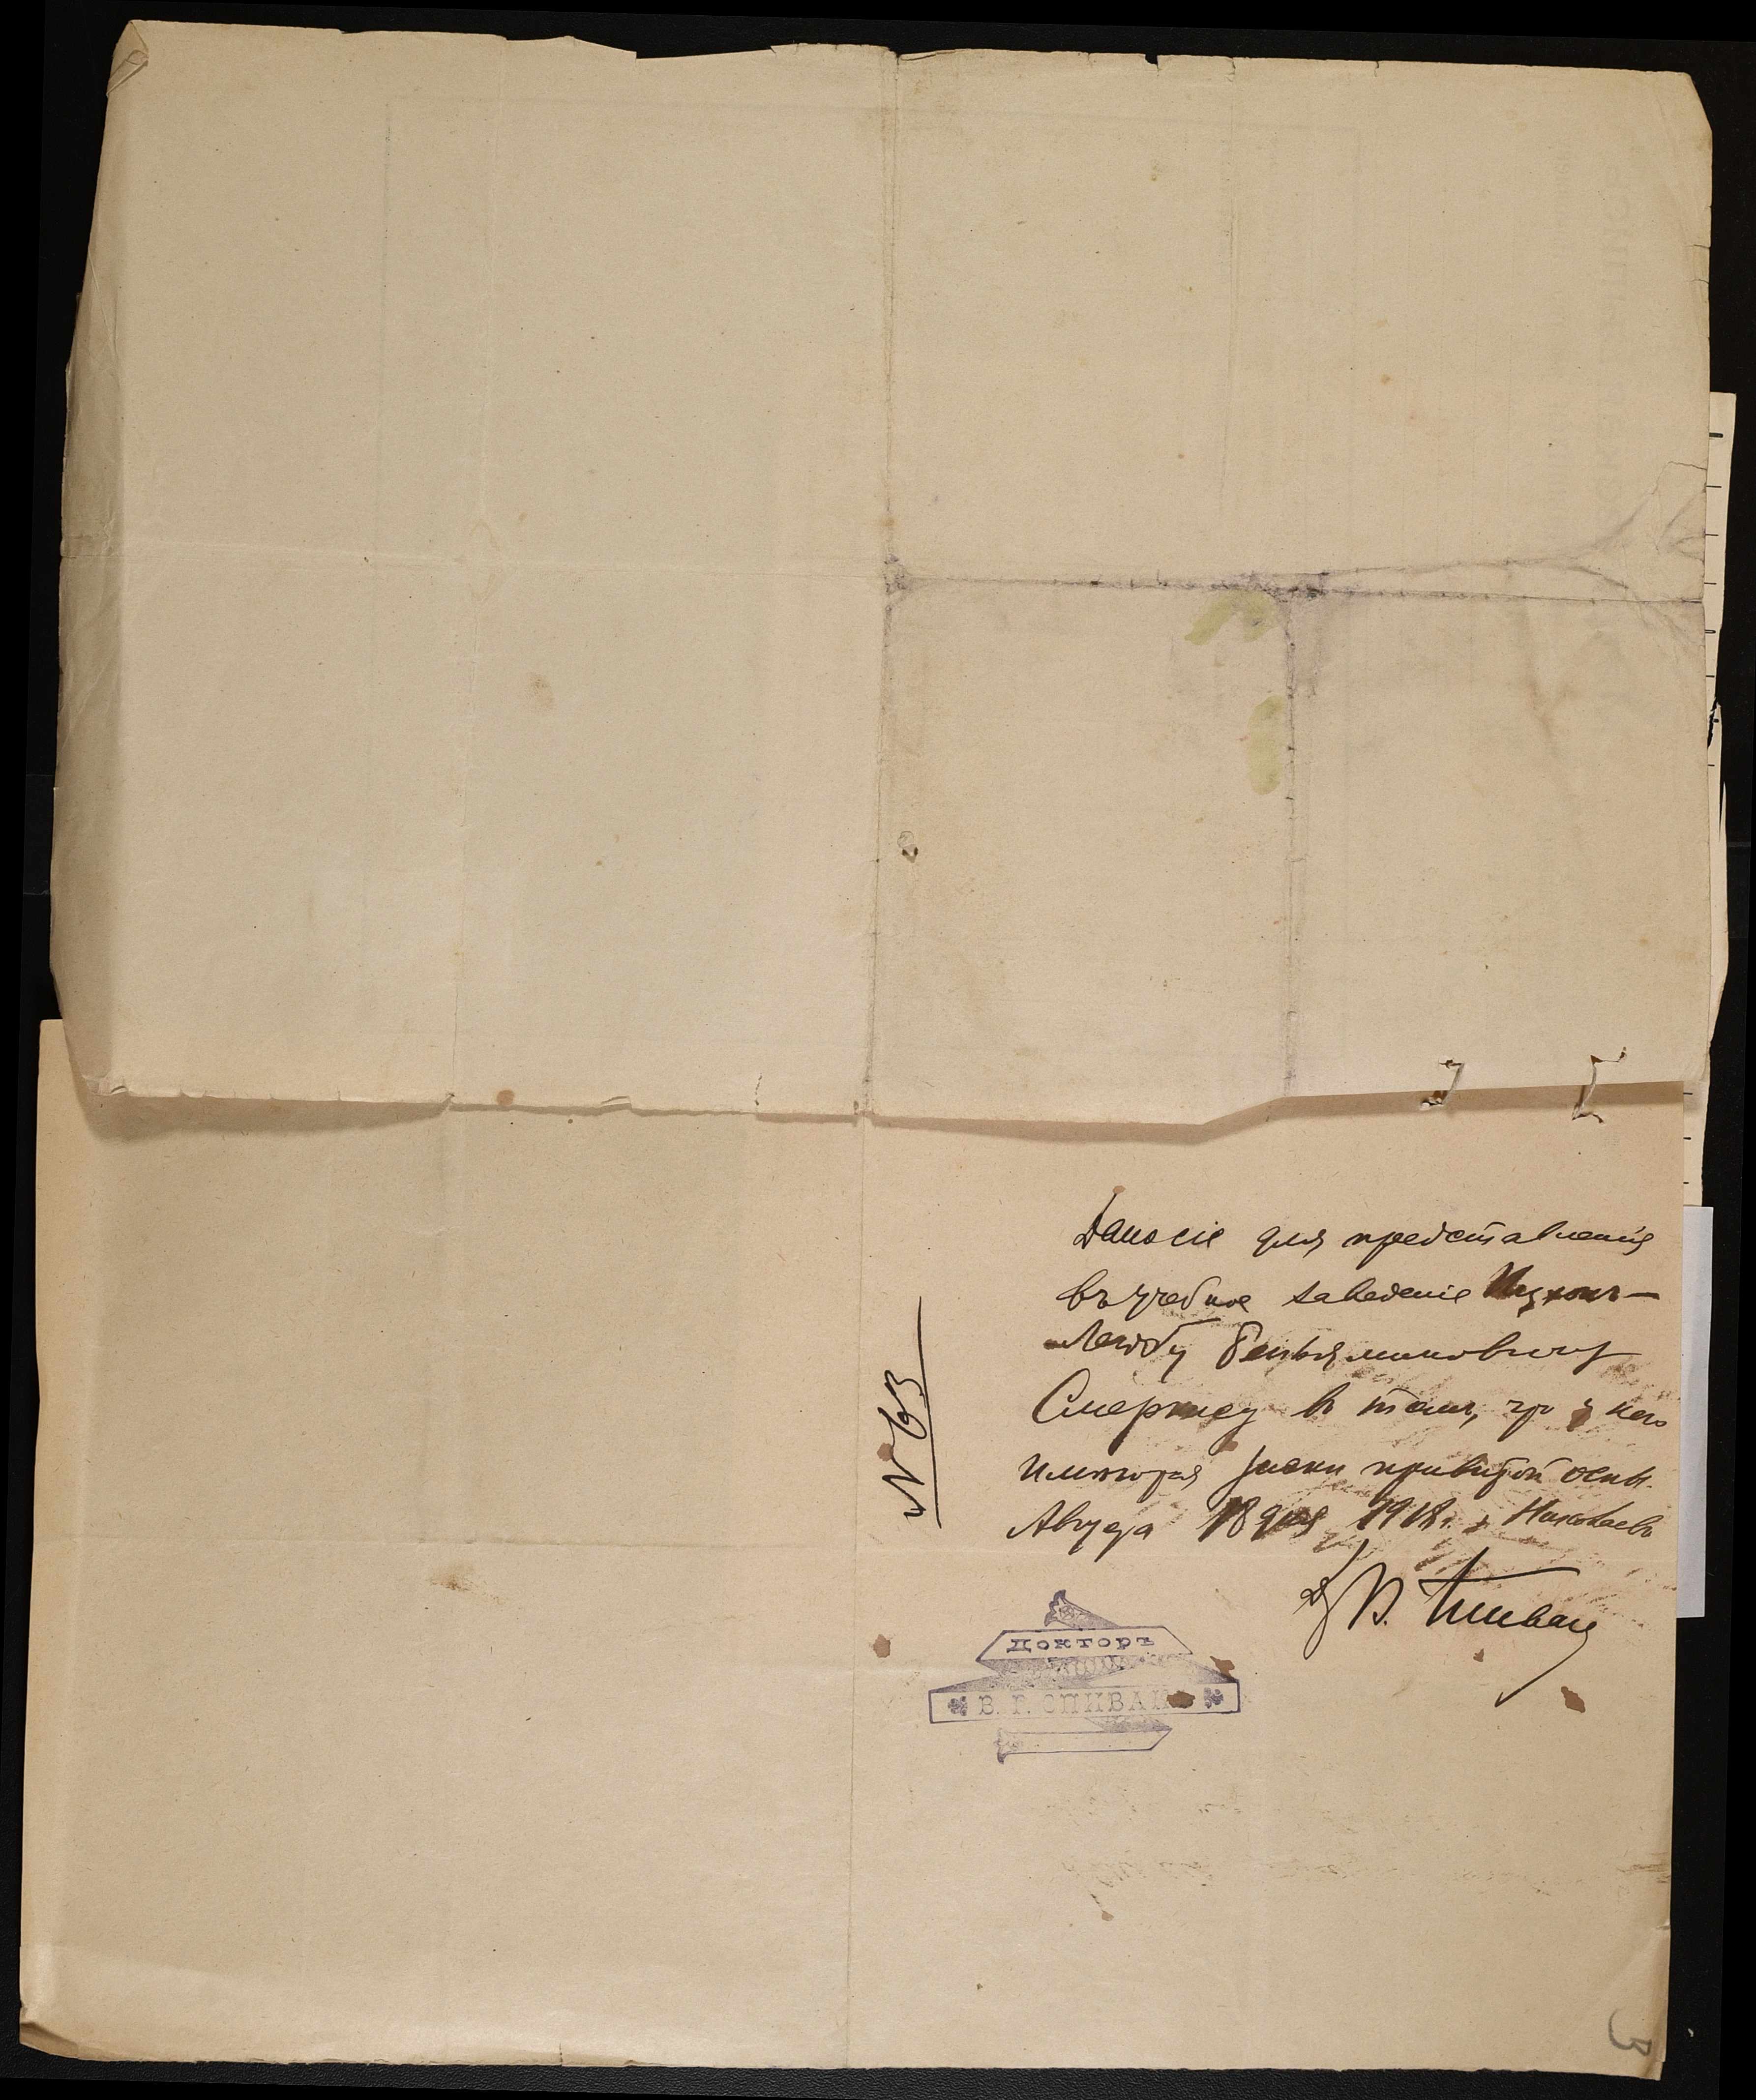 Дано сіе для представленія
въ учебное заведеніе Ицхокъ-
Лейбу Беньяминовичу
Смеркису въ томъ, что у него
имеются знаки привитой оспы.
Августа 18 дня 1918 г. г. Николаевъ
Др В. Спивак
№ 63
Докторъ
В. Г. СПИВАКЪ
3